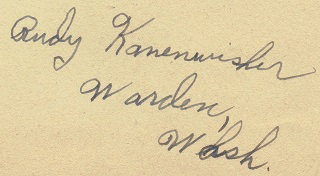 Rudy Kanenwisher
Warden,
Wash.